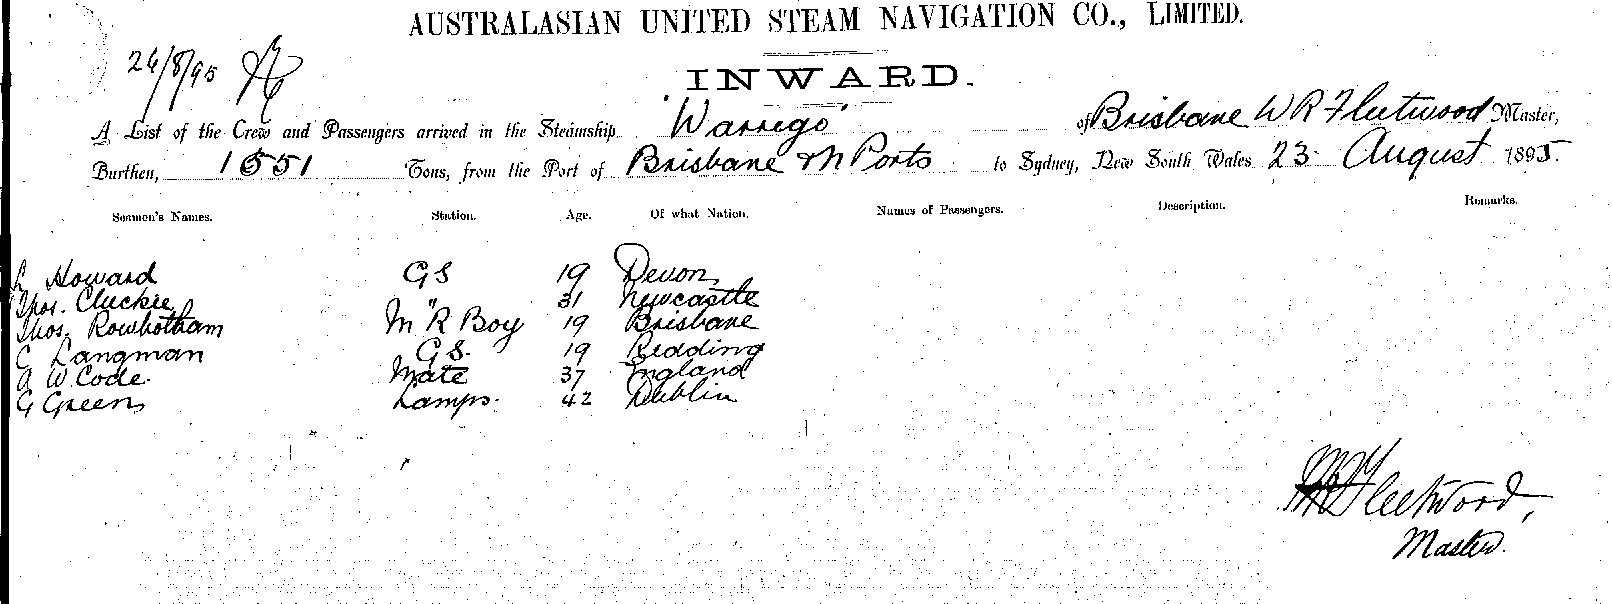 AUSTRALASIAN UNITED STEAM NAVIGATION CO., LIMITED.
26/8/95
INWARD.
A List of the Crew and Passengers arrived in the Steamship 'Warrego' of Brisbane W R Fleetwood Master,
Burthen, 1551 Tons, from the Port of Brisbane & N Ports to Sydney, New South Wales 23 August 1895.
Seamen's Names. Station. Age. Of what Nation. Names of Passengers. Description. Remarks.
L Howard GS 19 Devon
Thos. Cluckie " 31 Newcastle
Thos. Rowbotham M R Boy 19 Brisbane
C Langman GS. 19 Redding
A W Code. Mate 37 England
G Green Lamps. 42 Dublin
WR Fleetwood,
Master.